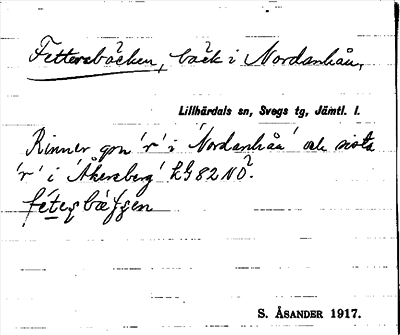 Fettersbäcken, bäck i Nordanhån,
Lillhärdals sn, Svegs tg, Jämtl. l.
Rinner gm 'r' i 'Nordanhån' och sista
'r' i 'Åkersberg' LG 82 NO.
S. ÅSANDER 1917.